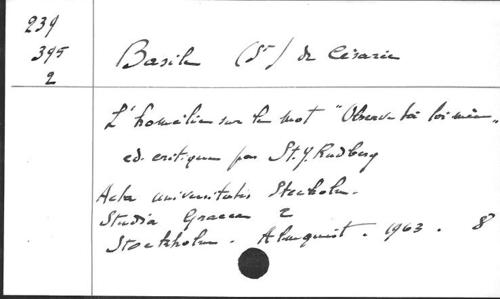 239
395
2
Basile (St) de Césarée
L'homélie sur le mot "Observe-toi toi-même"
ed. critique par St. Y. Rudberg
Acta universitatis Stockholm.
Studia Graeca 2
Stockholm. Almquist. 1963. 8°